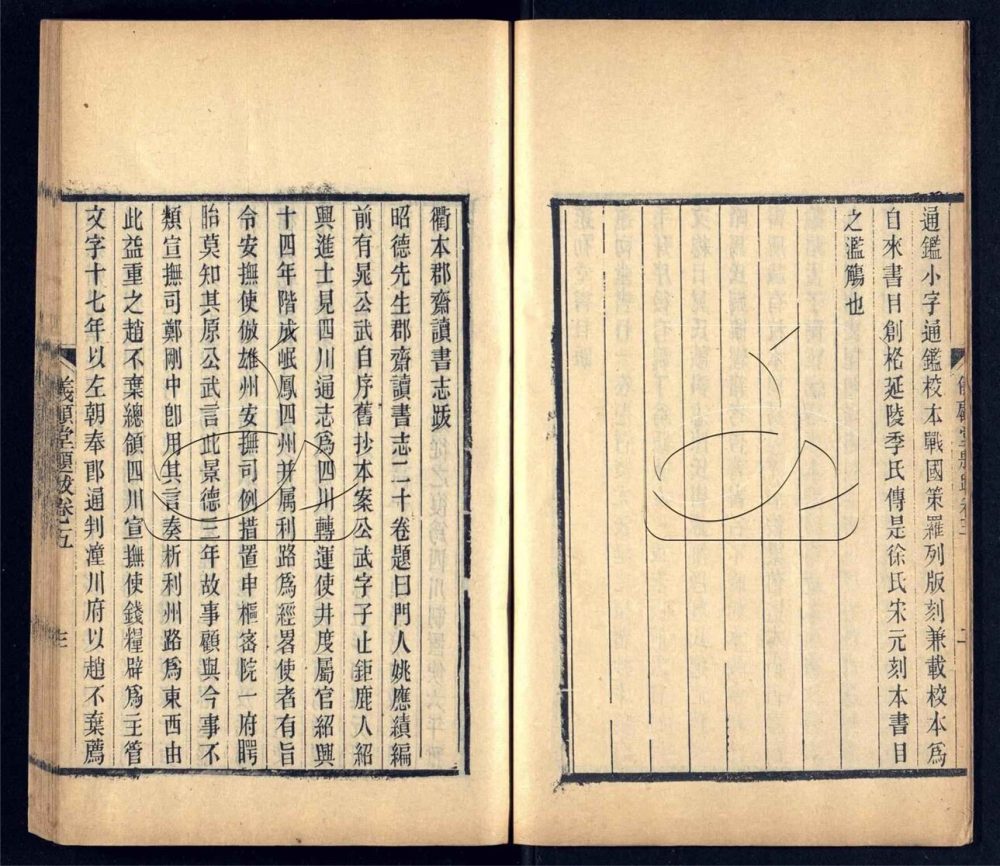 通鑑小字通鑑校本戰國策羅列版刻兼載校本爲
自來書目創格延陵季氏傳是徐氏宋元刻本書目
之濫觴也
衢本郡齋讀書志跋
昭德先生郡齋讀書志二十卷題曰門人姚應績編
前有晁公武自序舊抄本案公武字子止鉅鹿人紹
興進士見四川通志爲四川轉運使井度屬官紹興
十四年階成岷鳳四州并屬利路爲經畧使者有旨
令安撫使倣雄州安撫司例措置申樞宻院一府腭
眙莫知其原公武言此景德三年故事顧與今事不
類宣撫司鄭剛中卽用其言奏析利州路爲東西由
此益重之趙不棄總領四川宣撫使錢糧辟爲主管
文字十七年以左朝奉郎通判潼川府以趙不棄薦
儀顧堂題跋卷五